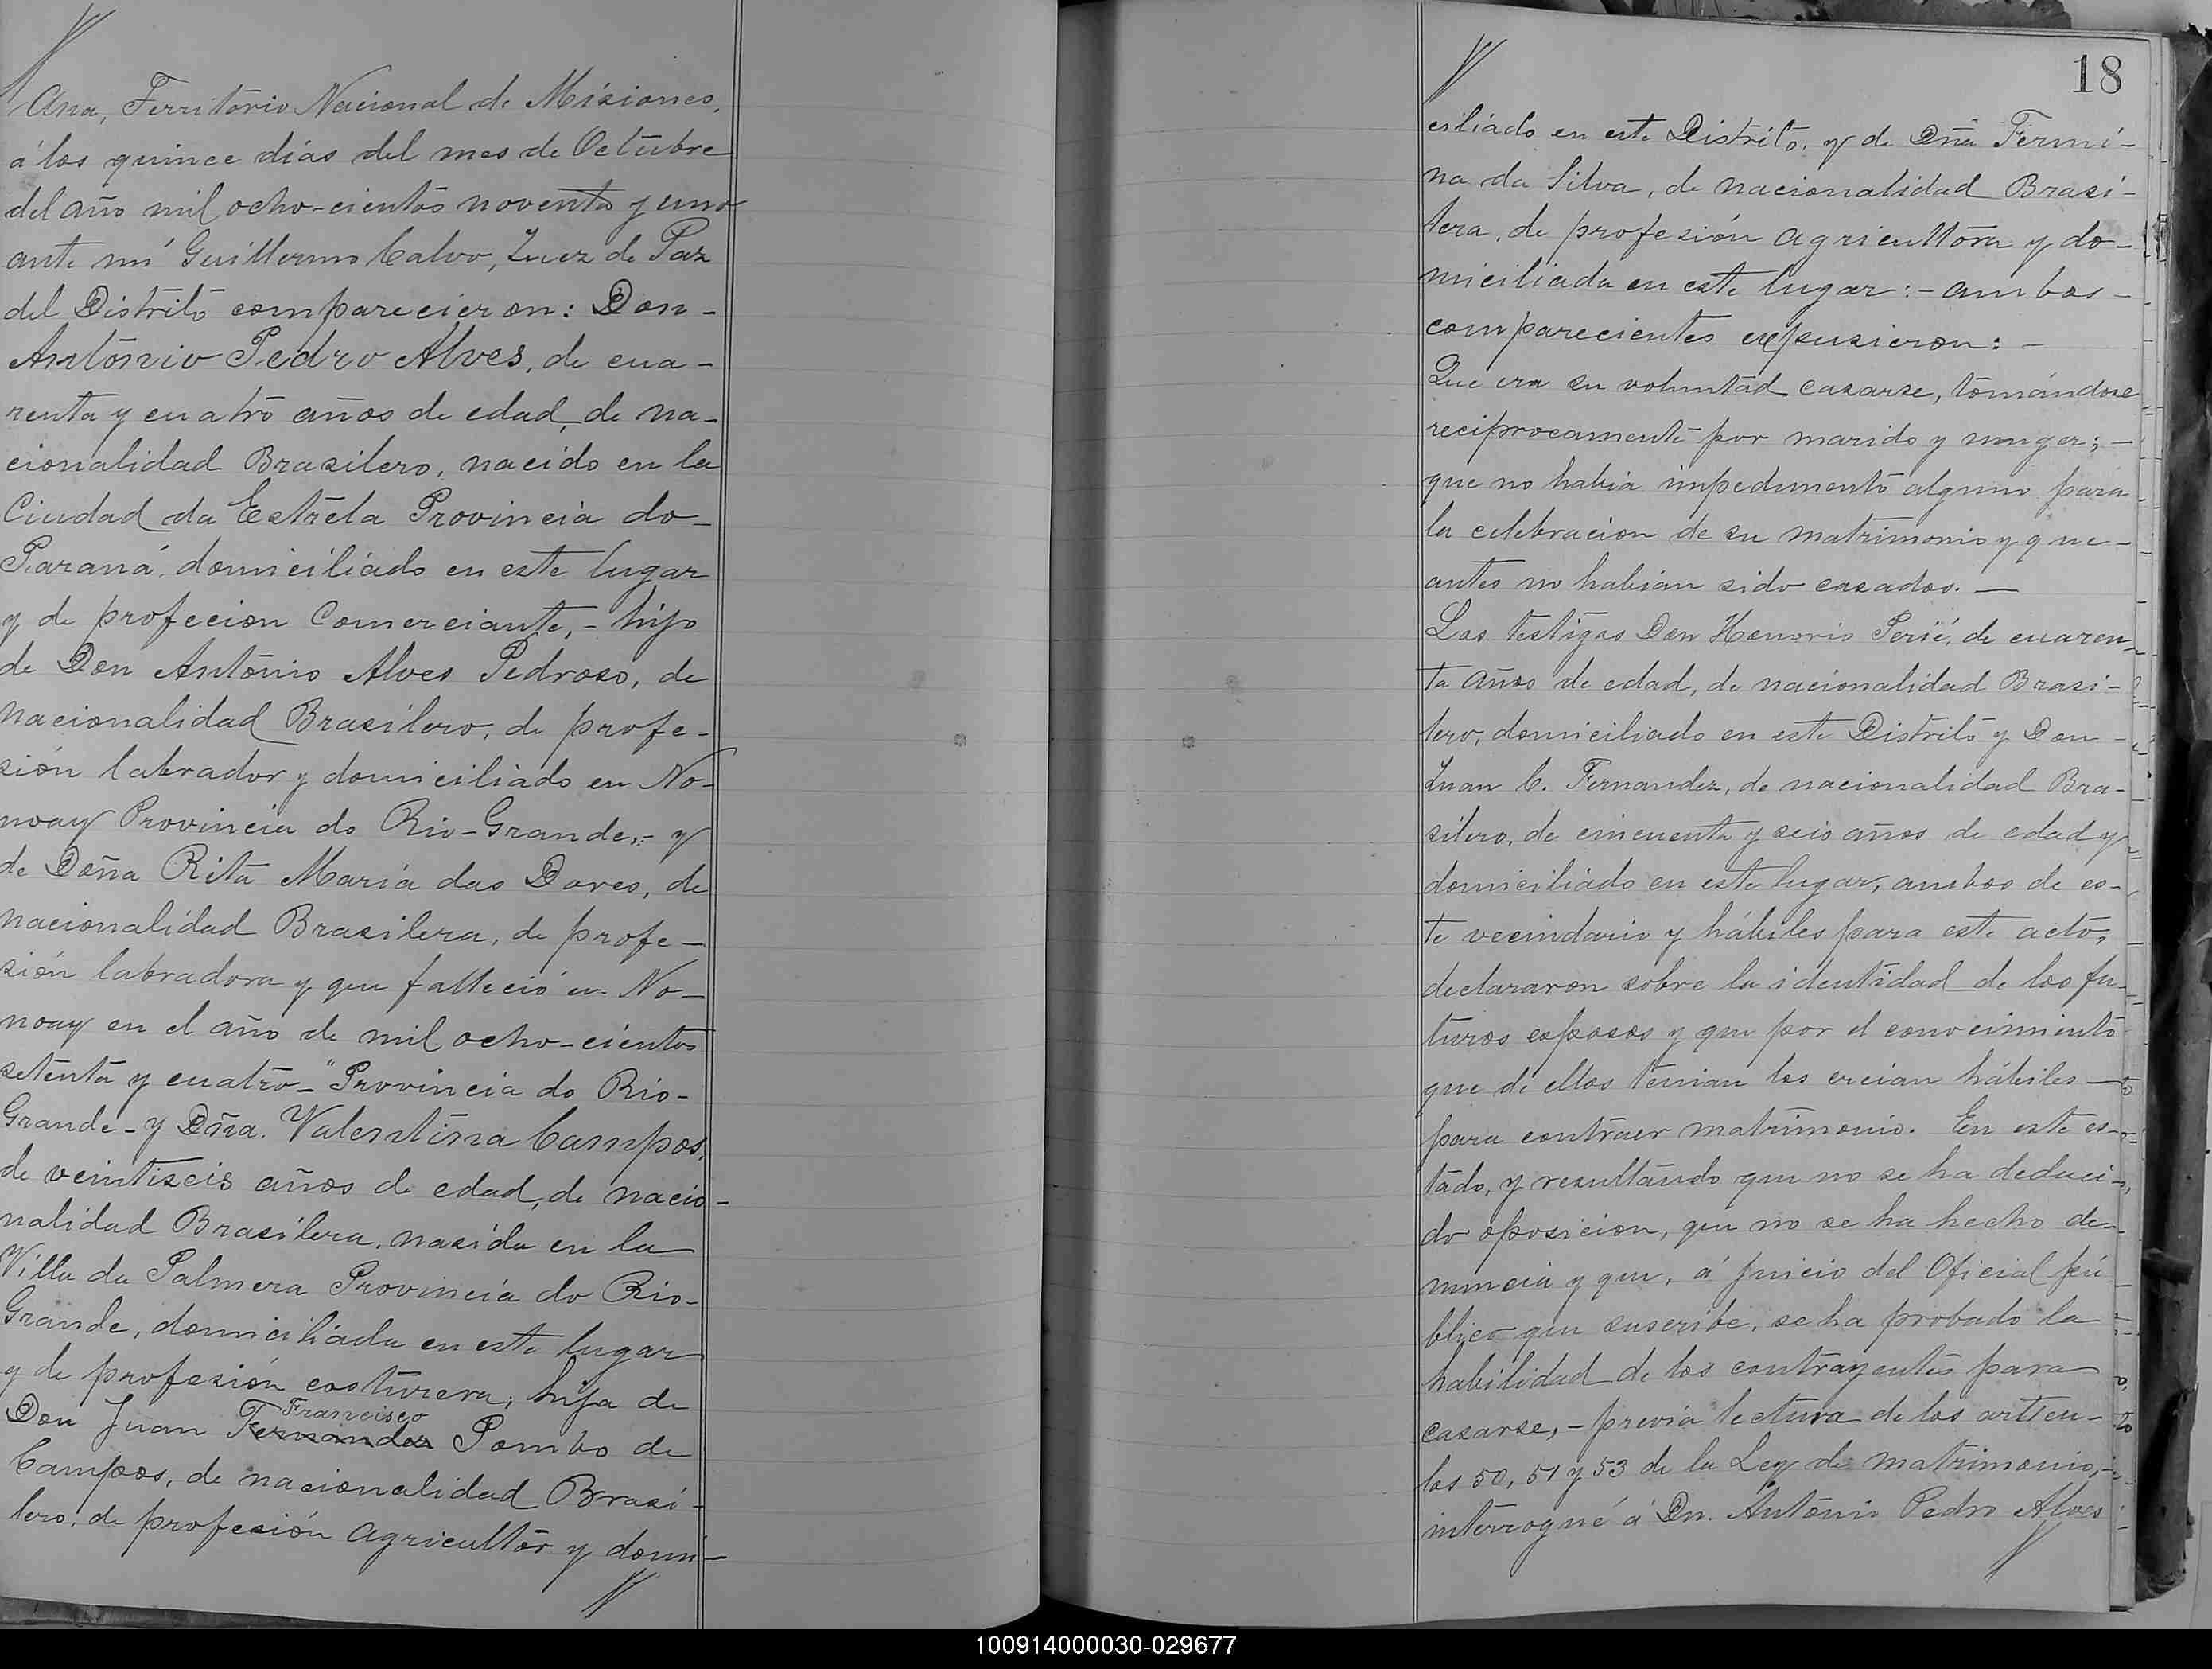 Ana, Territorio Nacional de Misiones,
á los quince dias del mes de Octubre
del año mil ocho-cientos noventa y uno
ante mí Guillermo Calvo, Juez de Paz
del Distrito comparecieron: Don-
António Pedro Alves, de cua-
renta y cuatro años de edad, de na-
cionalidad Brasilero, nacido en la
Ciudad da Estrela Provincia do-
Paraná, domiciliado en este lugar
y de profecion Comerciante, - hijo
de Don António Alves Pedroso, de
nacionalidad Brasilero, de profe-
sión labrador y domiciliado en No-
noay Provincia do Rio-Grande,- y
de Doña Rita María das Dores, de
nacionalidad Brasilera, de profe-
sión labradora y que falleció en No-
noay en el año de mil ocho-cientos
setenta y cuatro-"Provincia do Rio-
Grande- y Dña. Valentina Campos,
de veintiseis años de edad, de nacio-
nalidad Brasilera, nasida en la
Villa da Palmera Provincia do Rio-
Grande, domiciliada en este lugar
y de profesión costurera; hija de
Francisco
Don Juan Fernandez Pombo de
Campos, de nacionalidad Brasi-
lero, de profesión agricultor y domi-
18
ciliado en este Distrito, y de Dña Fermi-
na da Silva, de nacionalidad Brasi-
lera, de profesión agricultora y do-
miciliada en este lugar: - ambos -
comparecientes expusieron: -
Que era su voluntad casarse, tomándose
reciprocamente por marido y muger; -
que no habia impedimento alguno para
la celebracion de su matrimonio y que -
antes no habian sido casados. -
Los testigos Don Honorio Perié, de cuaren-
ta años de edad, de nacionalidad Brasi-
lero, domiciliado en este Distrito y Don -
Juan C. Fernandez, de nacionalidad Bra-
silero, de cincuenta y seis años de edad y
domiciliado en este lugar, ambos de es-
te vecindario y hábiles para este acto,
declararon sobre la identidad de los fu-
turos esposos y que por el conocimiento
que de ellos tenian los creian hábiles -
para contraer matrimonio. En este es-
tado, y resultando que no se ha deduci-
do oposicion, que no se ha hecho de-
nuncia y que, á juicio del Oficial pú
blico que suscribe, se ha probado la
habilidad de los contrayentes para
casarse, - previa lectura de los articu-
los 50, 51 y 53 de la Ley de matrimonio,-
interrogué á Dn. António Pedro Alves
100914000030-029677